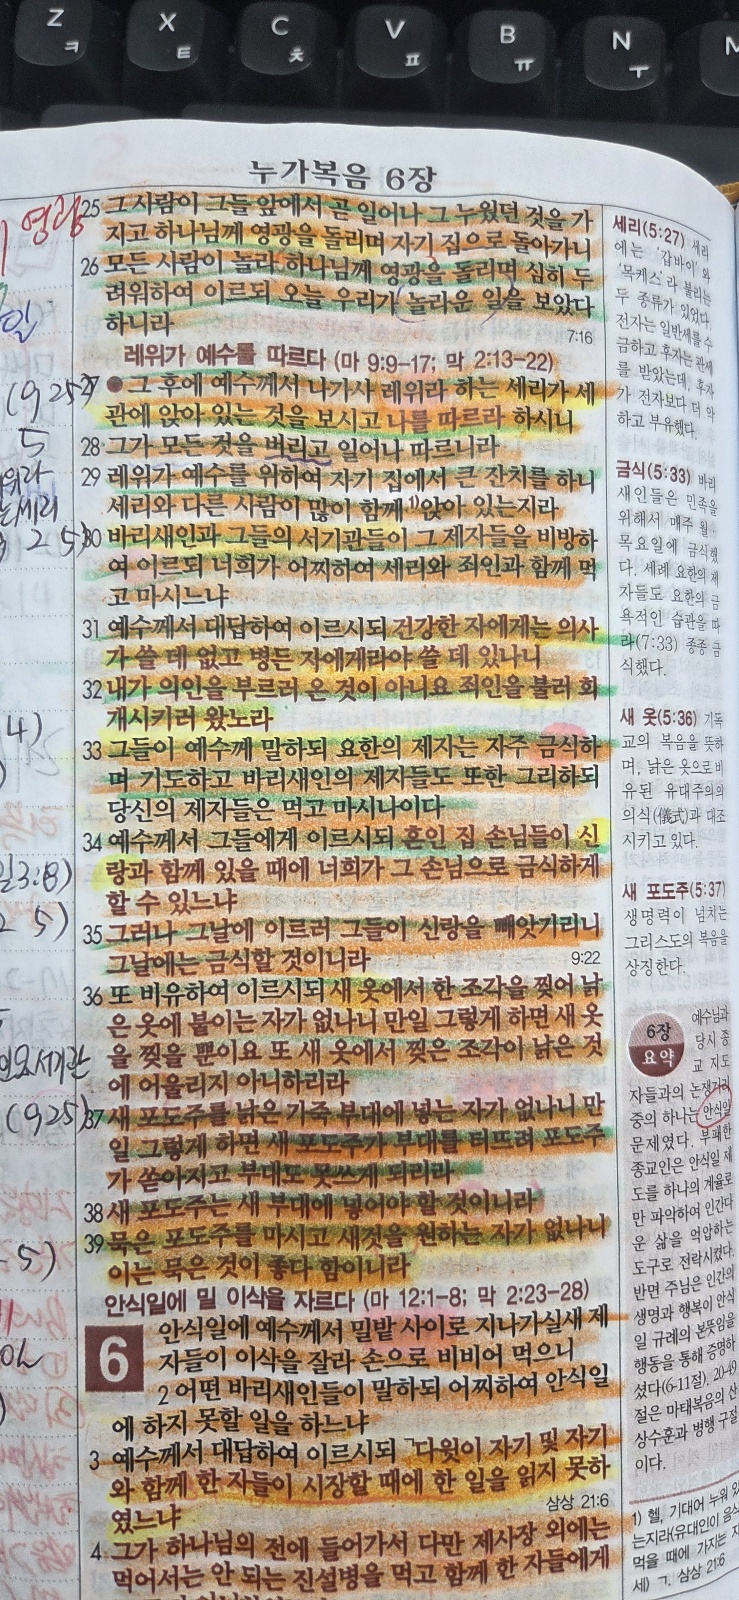 Z ㅋ
X ㅌ
C ㅊ
V ㅍ
B ㅠ
N ㅜ
M
누가복음 6장
25 그 사람이 그들 앞에서 곧 일어나 그 누웠던 것을 가
지고 하나님께 영광을 돌리며 자기 집으로 돌아가니
26 모든 사람이 놀라 하나님께 영광을 돌리며 심히 두
려워하여 이르되 오늘 우리가 놀라운 일을 보았다
하니라
7:16
레위가 예수를 따르다 (마 9:9-17; 막 2:13-22)
27 ● 그 후에 예수께서 나가사 레위라 하는 세리가 세
관에 앉아 있는 것을 보시고 나를 따르라 하시니
28 그가 모든 것을 버리고 일어나 따르니라
29 레위가 예수를 위하여 자기 집에서 큰 잔치를 하니
세리와 다른 사람이 많이 함께 1)앉아 있는지라
30 바리새인과 그들의 서기관들이 그 제자들을 비방하
여 이르되 너희가 어찌하여 세리와 죄인과 함께 먹
고 마시느냐
31 예수께서 대답하여 이르시되 건강한 자에게는 의사
가 쓸 데 없고 병든 자에게라야 쓸 데 있나니
32 내가 의인을 부르러 온 것이 아니요 죄인을 불러 회
개시키러 왔노라
33 그들이 예수께 말하되 요한의 제자는 자주 금식하
며 기도하고 바리새인의 제자들도 또한 그리하되
당신의 제자들은 먹고 마시나이다
34 예수께서 그들에게 이르시되 혼인 집 손님들이 신
랑과 함께 있을 때에 너희가 그 손님으로 금식하게
할 수 있느냐
35 그러나 그날에 이르러 그들이 신랑을 빼앗기리니
그날에는 금식할 것이니라
9:22
36 또 비유하여 이르시되 새 옷에서 한 조각을 찢어 낡
은 옷에 붙이는 자가 없나니 만일 그렇게 하면 새 옷
을 찢을 뿐이요 또 새 옷에서 찢은 조각이 낡은 것
에 어울리지 아니하리라
37 새 포도주를 낡은 가죽 부대에 넣는 자가 없나니 만
일 그렇게 하면 새 포도주가 부대를 터뜨려 포도주
가 쏟아지고 부대도 못쓰게 되리라
38 새 포도주는 새 부대에 넣어야 할 것이니라
39 묵은 포도주를 마시고 새것을 원하는 자가 없나니
이는 묵은 것이 좋다 함이니라
안식일에 밀 이삭을 자르다 (마 12:1-8; 막 2:23-28)
6 안식일에 예수께서 밀밭 사이로 지나가실새 제
자들이 이삭을 잘라 손으로 비비어 먹으니
2 어떤 바리새인들이 말하되 어찌하여 안식일
에 하지 못할 일을 하느냐
3 예수께서 대답하여 이르시되 ㄱ다윗이 자기 및 자기
와 함께 한 자들이 시장할 때에 한 일을 읽지 못하
였느냐
삼상 21:6
4 그가 하나님의 전에 들어가서 다만 제사장 외에는
먹어서는 안 되는 진설병을 먹고 함께 한 자들에게
세리(5:27) 세리
에는 '갑바이'와
'목케스'라 불리는
두 종류가 있었다.
전자는 일반세를 수
금하고 후자는 관세
를 받았는데, 후자
가 전자보다 더 악
하고 부유했다.
금식(5:33) 바리
새인들은 민족을
위해서 매주 월·
목요일에 금식했
다. 세례 요한의 제
자들도 요한의 금
욕적인 습관을 따
라(7:33) 종종 금
식했다.
새 옷(5:36) 기독
교의 복음을 뜻하
며, 낡은 옷으로 비
유된 유대주의의
의식(儀式)과 대조
시키고 있다.
새 포도주(5:37)
생명력이 넘치는
그리스도의 복음을
상징한다.
6장
요약
예수님과
당시 종
교 지도
자들과의 논쟁거리
중의 하나는 안식일
문제였다. 부패한
종교인은 안식일 제
도를 하나의 계율로
만 파악하여 인간다
운 삶을 억압하는
도구로 전락시켰다.
반면 주님은 인간의
생명과 행복이 안식
일 규례의 본뜻임을
행동을 통해 증명하
셨다(6-11절). 20-49
절은 마태복음의 산
상수훈과 병행 구절
이다.
1) 헬, 기대어 누워 있
는지라(유대인이 음식
먹을 때에 가지는 자
세) ㄱ. 삼상 21:6
영광
일
(925)
5
세리
25)
4)
3:8)
5)
서기관
(925)
5)